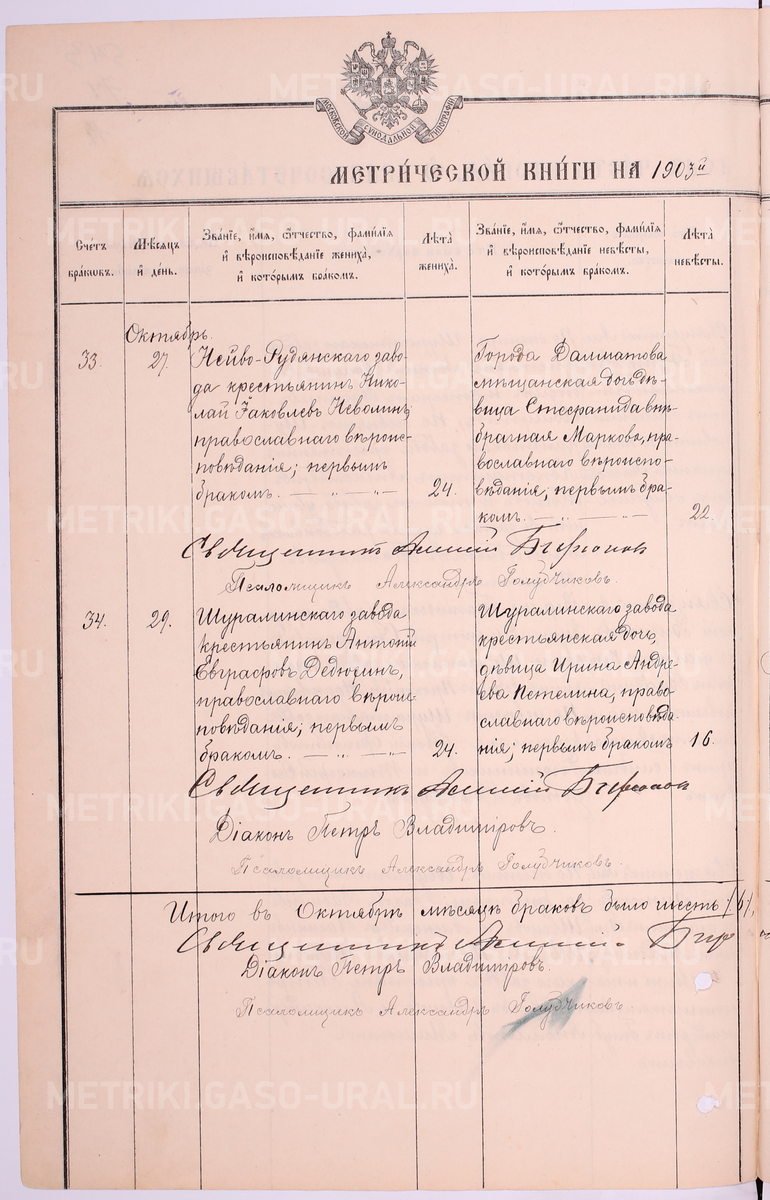 МОСКОВСКОЙ СѴНОДАЛЬНОЙ ТИПОГРАФІИ
МЕТРИ́ЧЕСКОЙ КНИ́ГИ НА 1903й
Счетъ браковъ.
Мѣсяцъ и день.
Званіе, имя, отчество, фамилія и вѣроисповѣданіе жениха, и которымъ бракомъ.
Лѣта жениха.
Званіе, имя, отчество, фамилія и вѣроисповѣданіе невѣсты, и которымъ бракомъ.
Лѣта невѣсты.
Октябрь.
33.
27.
Нейво-Рудянскаго заво-
да крестьянинъ Нико-
лай Іаковлевъ Неволинъ,
православнаго вѣроис-
повѣданія; первымъ
бракомъ. — „ — „ —
24.
Города Далматова
мѣщанская дочь дѣ-
вица Стефанида внѣ-
брачная Маркова, пра-
вославнаго вѣроиспо-
вѣданія; первымъ бра-
комъ. — „ — „ —
22.
Священникъ
Псаломщикъ Александръ Голубчиковъ.
34.
29.
Шуралинскаго завода
крестьянинъ Антоній
Евграфовъ Дедюхинъ,
православнаго вѣроис-
повѣданія; первымъ
бракомъ. — „ — „ —
24.
Шуралинскаго завода
крестьянская дочь,
дѣвица Ирина Андре-
ева Петелина, право-
славнаго вѣроисповѣда-
нія; первымъ бракомъ
16.
Священникъ
Діаконъ Петръ Владиміровъ.
Псаломщикъ Александръ Голубчиковъ.
Итого въ Октябрѣ мѣсяцѣ браковъ было шесть /6/.
Священникъ
Діаконъ Петръ Владиміровъ.
Псаломщикъ Александръ Голубчиковъ.
METRIKI.GASO-URAL.RU